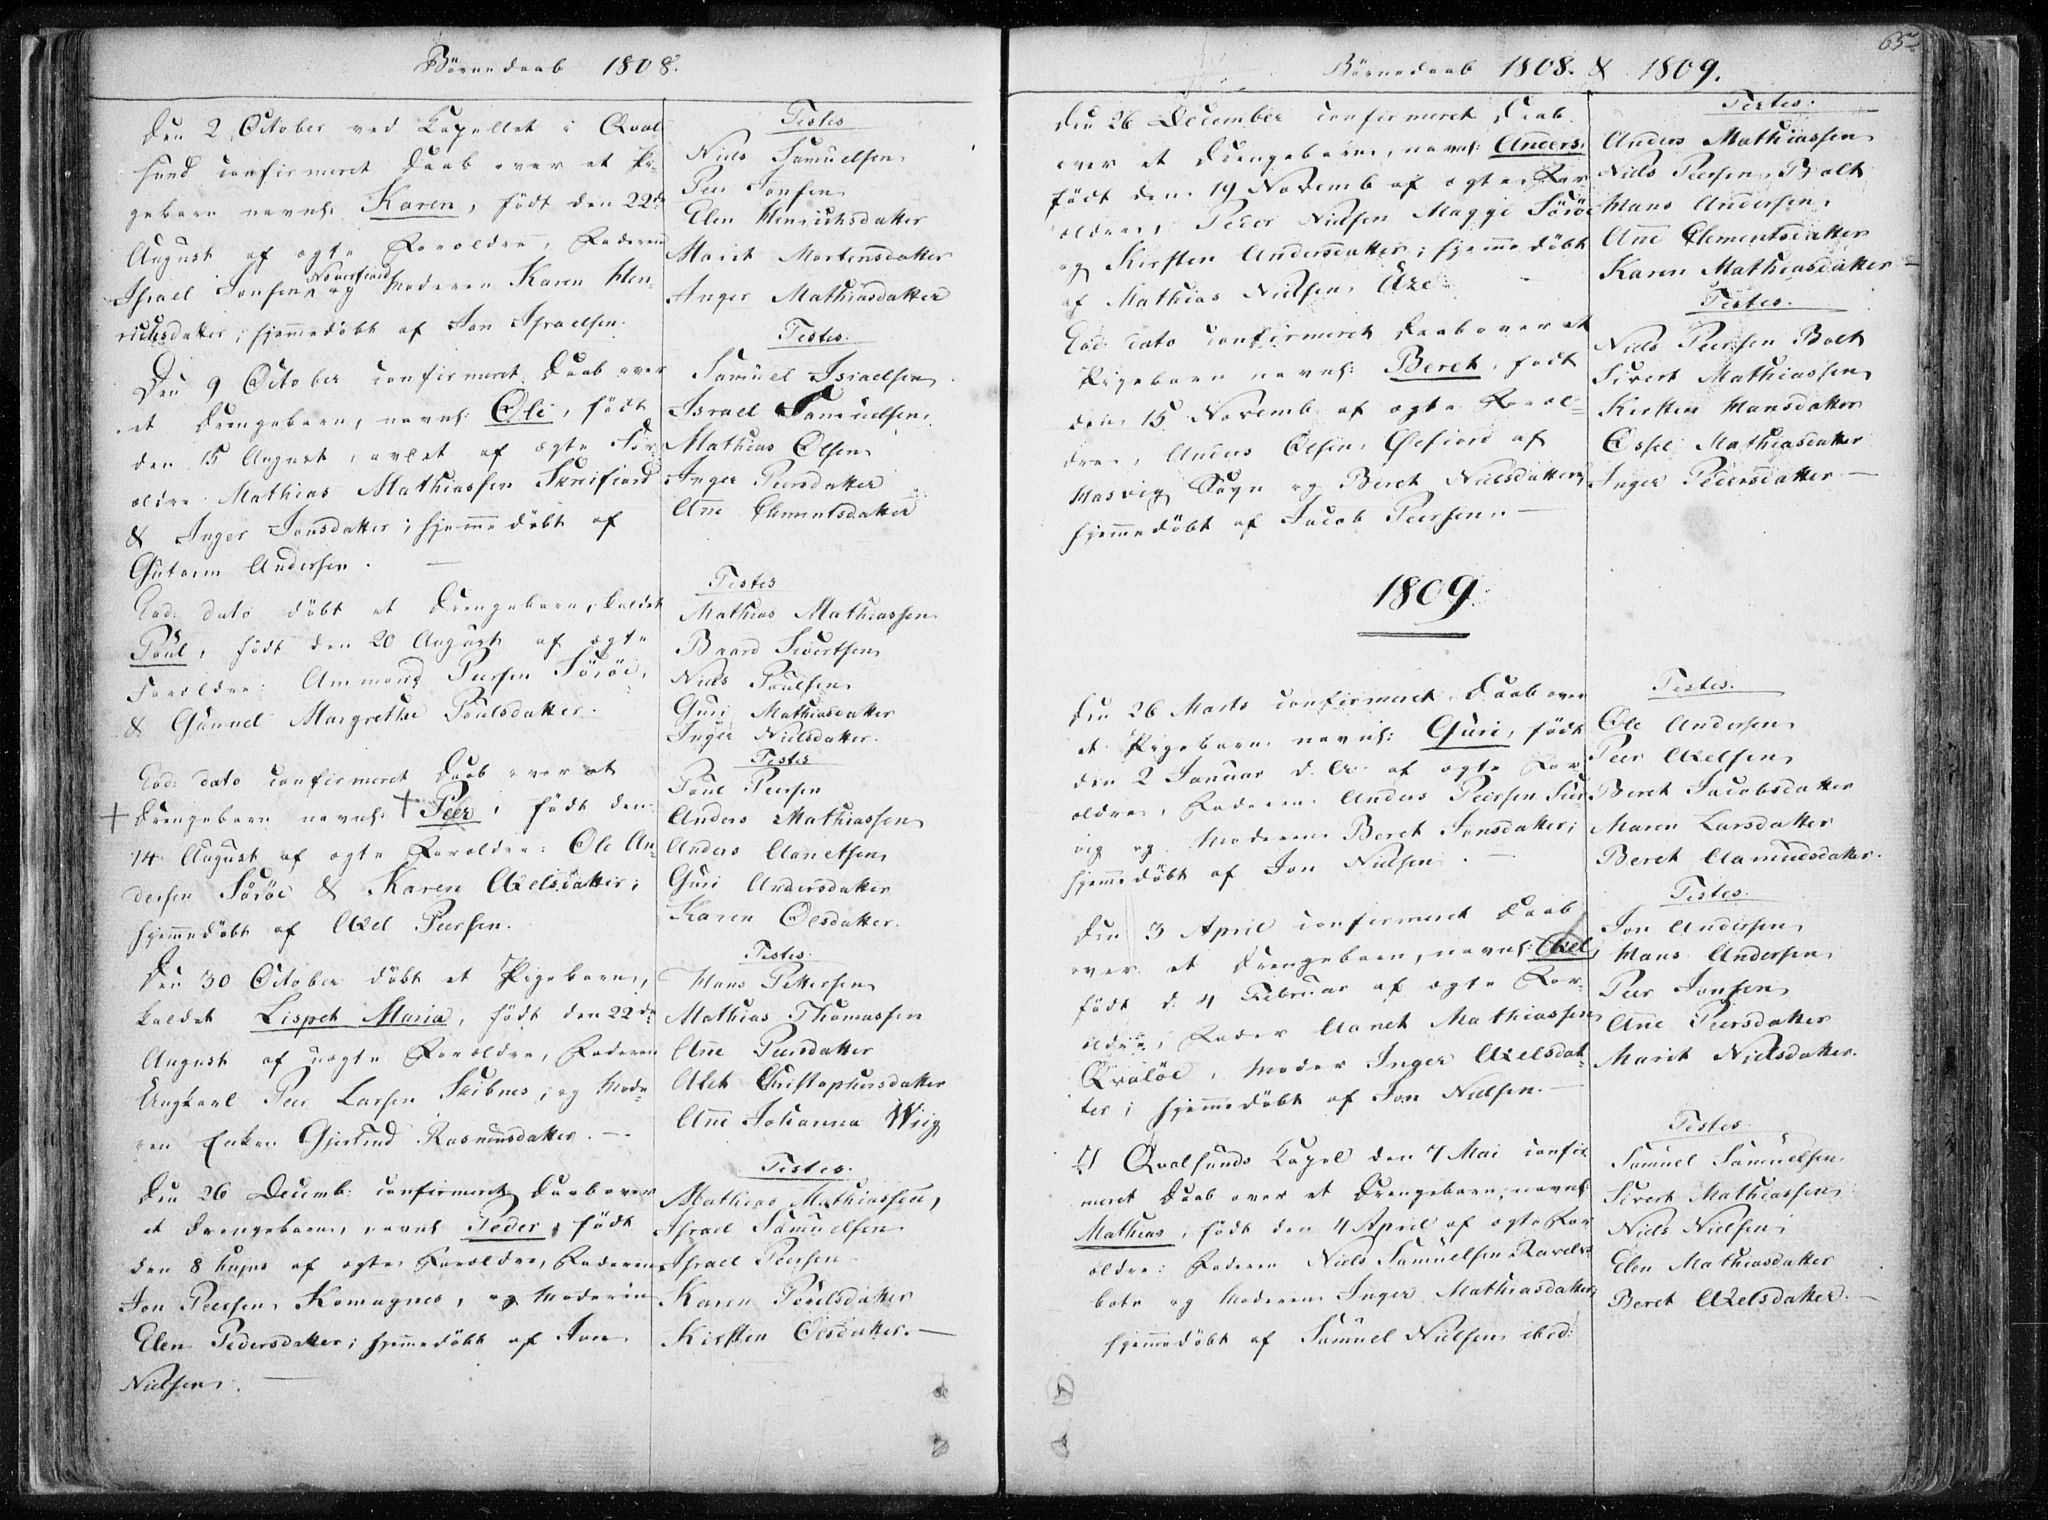 Börnedaab 1808.
Den 2 October ved Kapellet i Qval
sund confirmeret Daab over et Pi-
gebarn navnl: Karen, födt den 22de
August af ægte Forældre, Faderen
Israel Jonsen Noverfiord og Moderen Karen Hen-
richsdatter; hjemmedöbt af Jon Israelsen.
Testes
Niels Samuelsen
Peer Jonsen
Elen Henrichsdatter
Marit Mortensdatter
Inger Mathiasdatter
Den 9 October confirmeret Daab over
et Drengebarn, navnl: Ole, födt
den 15 August, avlet af ægte For
ældre Mathias Mathiassen Skreifiord
& Inger Jonsdatter; hjemmedöbt af
Gutorm Andersen.
Testes.
Samuel Israelsen
Israel Samuelsen
Mathias Olsen
Inger Peersdatter
Ane Clementsdatter
Eod: dato döbt et Drengebarn, kaldet
Poul, födt den 20 August af ægte
Forældre: Ammond Peersen Söröe,
& Gunnel Margrethe Poulsdatter.
Testes
Mathias Mathiassen
Baard Sivertsen
Niels Poulsen
Guri Mathiasdatter
Inger Nielsdatter.
Eod: dato confirmeret Daab over et
+ Drengebarn navnl: + Peer, födt den
14 August af ægte Forældre: Ole An-
dersen Söröe & Karen Axelsdatter;
hjemmedöbt af Axel Peersen.
Testes
Poul Peersen
Anders Mathiassen
Anders Aanetsen
Guri Andersdatter
Karen Olsdatter.
Den 30 October döbt et Pigebarn,
kaldet Lispet Maria, födt den 22de
August af uægte Forældre, Faderen
Ungkarl Peer Larsen Skibnes, og Mode-
ren Enken Gjertrud Rasmusdatter.
Testes.
Hans Pettersen
Mathias Thomassen
Ane Peersdatter
Alet Christophersdatter
Ane Johanna Wiig
Den 26 Decemb: confirmeret Daab over
et Drengebarn, navnl Peder, födt
den 8 hujus af ægte Forældre, Faderen
Jon Peersen Komagnes, og Moderen
Elen Pedersdatter; hjemmedöbt af Jon
Nielsen.
Testes.
Mathias Mathiassen,
Israel Samuelsen
Israel Peersen
Karen Poulsdatter
Kirsten Olsdatter.
65
Börnedaab 1808. & 1809.
Den 26 December confirmeret Daab
over et Drengebarn, navnl: Anders,
födt den 19 Novemb af ægte For
ældre, Peder Nielsen Magge Söröe
og Kirsten Andersdatter; hjemmedöbt
af Mathias Nielsen
Testes.
Anders Mathiassen
Niels Peersen Bolt
Hans Andersen
Ane Clementsdatter
Karen Mathiasdatter
Eod: dato confirmeret Daab over et
Pigebarn navnl: Beret, födt
den 15 Novemb af ægte Foræl-
dre, Anders Olsen Öefiord af
Hasvig Sogn og Beret Nielsdatter;
hjemmedöbt af Jacob Peersen.
Testes.
Niels Peersen Bolt
Sivert Mathiassen
Kirsten Hansdatter
Ossel Mathiasdatter
Inger Pedersdatter
1809.
Den 26 Marts confirmeret Daab over
et Pigebarn navnl: Guri, födt
den 2 Januar d. A. af ægte For
ældre, Faderen Anders Peersen Sur
vig og Moderen Beret Jonsdatter;
hjemmedöbt af Jon Nielsen.
Testes.
Ole Andersen
Peer Axelsen
Beret Jacobsdatter
Maren Larsdatter
Beret Aamundsdatter.
Den 3 April confirmeret Daab
over et Drengebarn, navnl: Axel,
födt d. 4 Februar af ægte For-
ældre, Fader Aanet Mathiassen
Qvalöe, Moder Inger Axelsdat-
ter; hjemmedöbt af Jon Nielsen.
Testes.
Jon Andersen
Hans Andersen
Peer Jonsen
Ane Peersdatter
Marit Nielsdatter.
I Qvalsunds Kapel den 7 Mai confir
meret Daab over et Drengebarn, navnl
Mathias, födt den 4 April af ægte For
ældre: Faderen Niels Samuelsen Ravels
botn og Moderen Inger Mathiasdatter;
hjemmedöbt af Samuel Nielsen ibid:
Testes.
Samuel Samuelsen
Sivert Mathiassen
Niels Nielsen
Elen Mathiasdatter
Beret Axelsdatter.